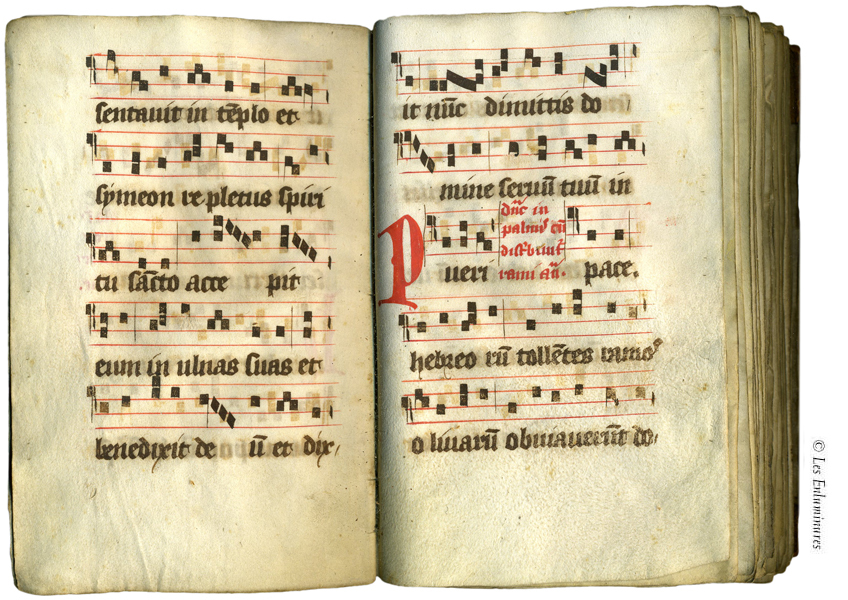 sentauit in tēplo et
symeon re pletus spiri
tu sācto acce pit
eum in ulnas suas et
benedixit de ū et dix
it nūc dimittis do
mine seruū tuū in
Dūc in
palmis
rami añ
P ueri pace.
hebreo rū tollētes ramos
o liuarū obuiauerūt do
© Les Enluminures